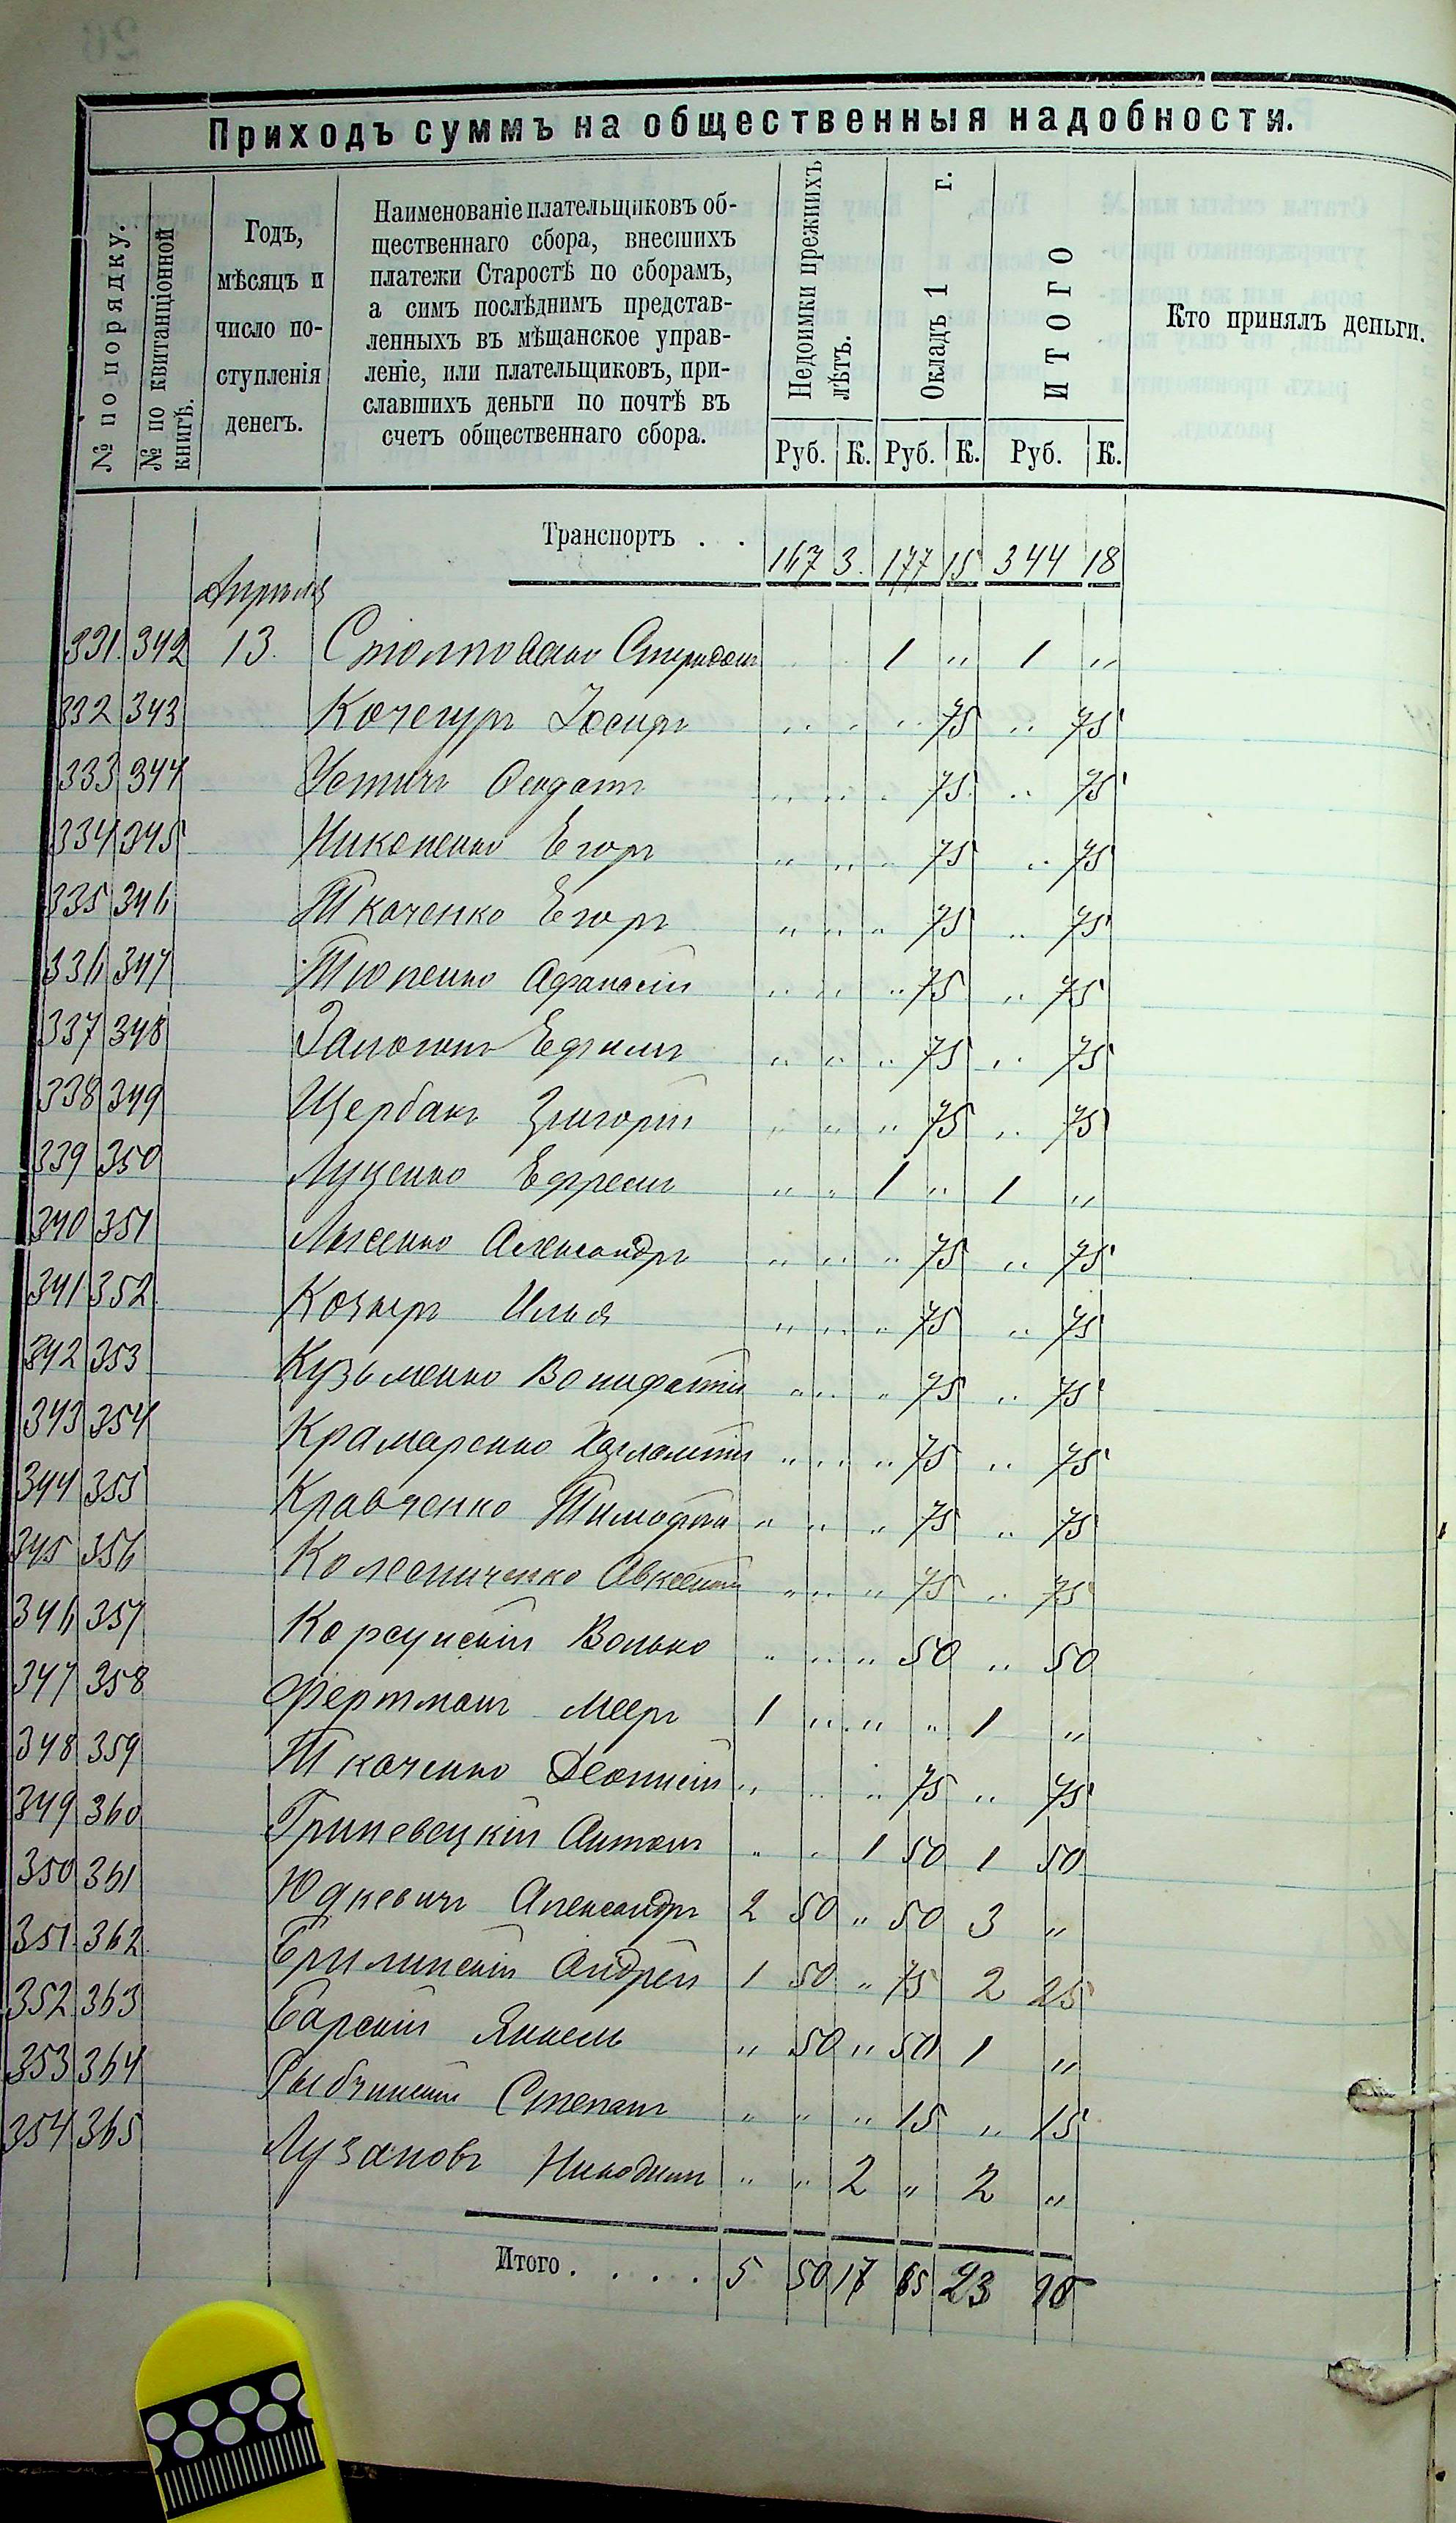 Приходъ суммъ на общественныя надобности.
№ по порядку.
№ по квитанціонной книгѣ.
Годъ,
мѣсяцъ и
число по-
ступленія
денегъ.
Наименованіе плательщиковъ об-
щественнаго сбора, внесшихъ
платежи Старостѣ по сборамъ,
а симъ послѣднимъ представ-
ленныхъ въ мѣщанское управ-
леніе, или плательщиковъ, при-
славшихъ деньги по почтѣ въ
счетъ общественнаго сбора.
Недоимки прежнихъ лѣтъ.
Окладъ 1 г.
ИТОГО
Кто принялъ деньги.
Руб. К. Руб. К. Руб. К.
Транспортъ . . 167 3 177 15 344 18
Апрѣля
331. 342 13. Спиридонъ 1 " 1 "
332 343 Кочегуръ Іосифъ " " " 75 " 75
333 344 " " " 75 " 75
334 345 Никоненко Егоръ " " " 75 " 75
335 346 Ткаченко Егоръ " " " 75 " 75
336 347 Тюпенко Афанасій " " " 75 " 75
337 348 Ефимъ " " " 75 " 75
338 349 Щербакъ Григорій " " " 75 " 75
339 350 Луценко Ефремъ " " 1 " 1 "
340 351 Лысенко Александръ " " " 75 " 75
341 352 Козыръ Илья " " " 75 " 75
342 353 Кузьменко Вонифатій " " " 75 " 75
343 354 Крамаренко Харлампій " " " 75 " 75
344 355 Кравченко Тимофей " " " 75 " 75
345 356 Колесниченко Авксентій " " " 75 " 75
346 357 Корсунскій Волько " " " 50 " 50
347 358 Фертманъ Мееръ 1 " " " 1 "
348 359 Ткаченко Деонисій " " " 75 " 75
349 360 Гриневецкій Антонъ " " 1 50 1 50
350 361 Юдкевичъ Александръ 2 50 " 50 3 "
351. 362. Брилинскій Андрей 1 50 " 75 2 25
352. 363 Барскій Янкель " 50 " 50 1 "
353 364 Рыбчинскій Степанъ " " " 15 " 15
354 365 Лузановъ Никодимъ " " 2 " 2 "
Итого . . . . 5 50 17 65 23